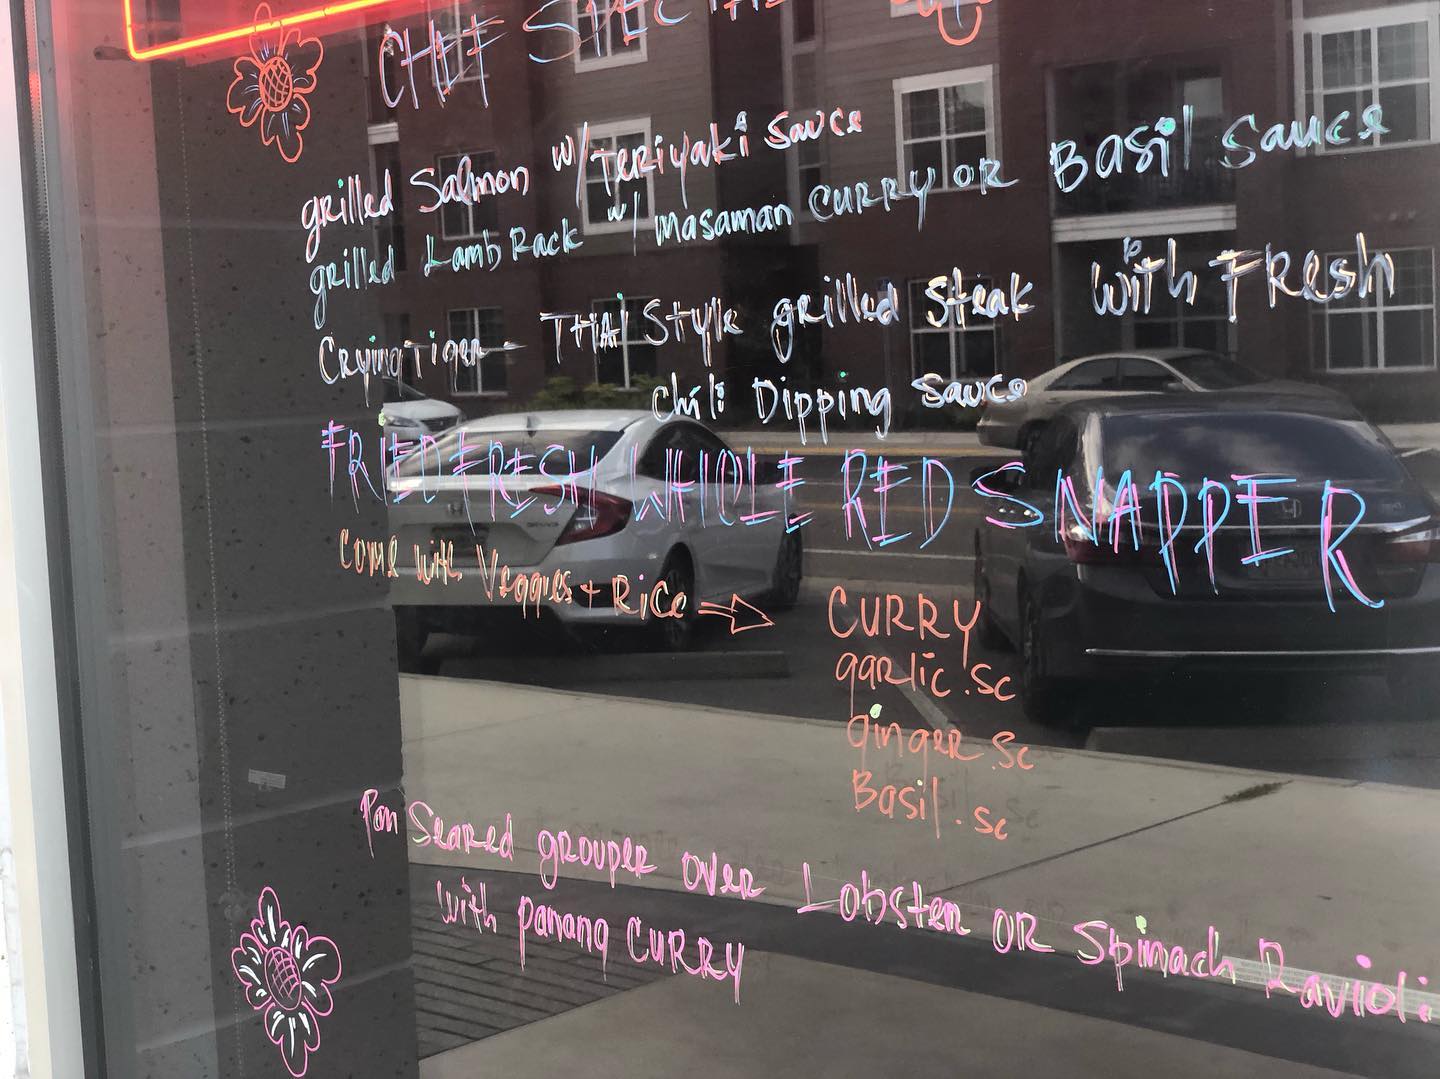 CHEF SPECIAL
grilled Salmon w/ Teriyaki Sauce
grilled Lamb Rack w/ masaman CURRY OR Basil Sauce
Crying Tiger - THAI Style grilled Steak With Fresh
chili Dipping Sauce
FRIED FRESH WHOLE RED SNAPPER
Come with Veggies + Rice → CURRY
garlic.sc
ginger.sc
Basil.sc
Pan Seared grouper over Lobster OR Spinach Ravioli
with panang CURRY